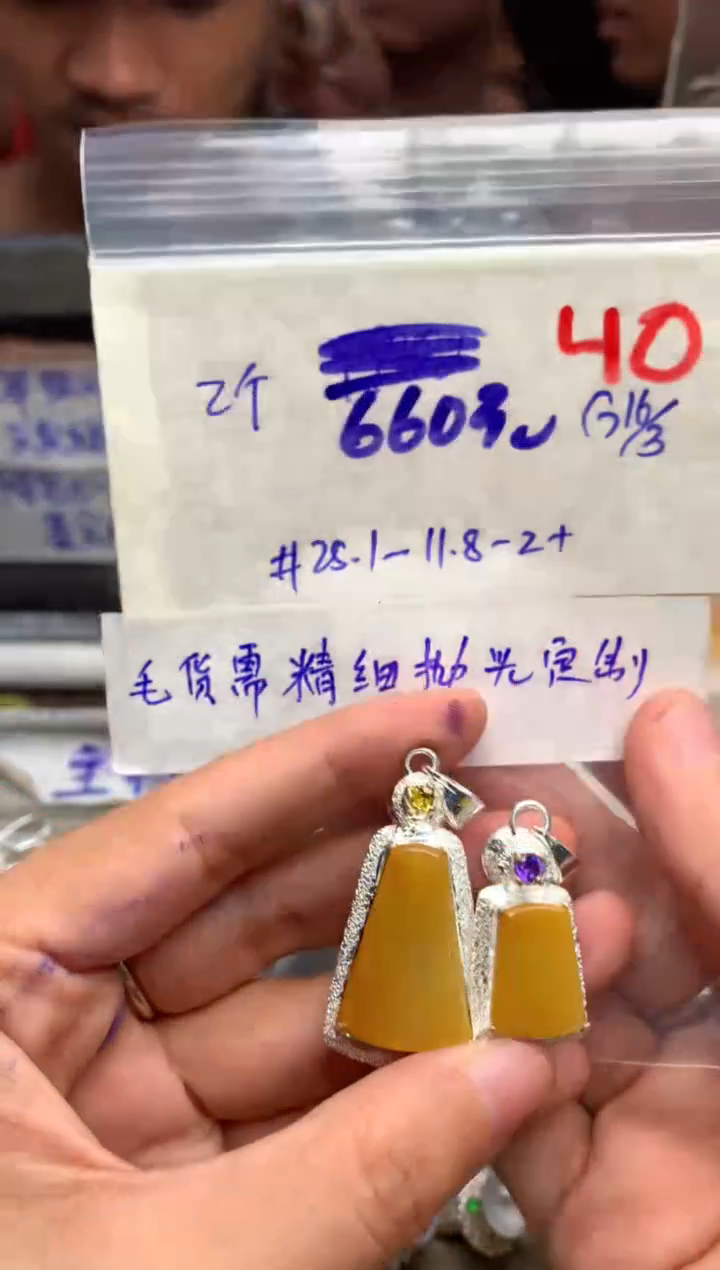 40
2个 6603
#25.1-11.8-2+
毛货需精细抛光定制